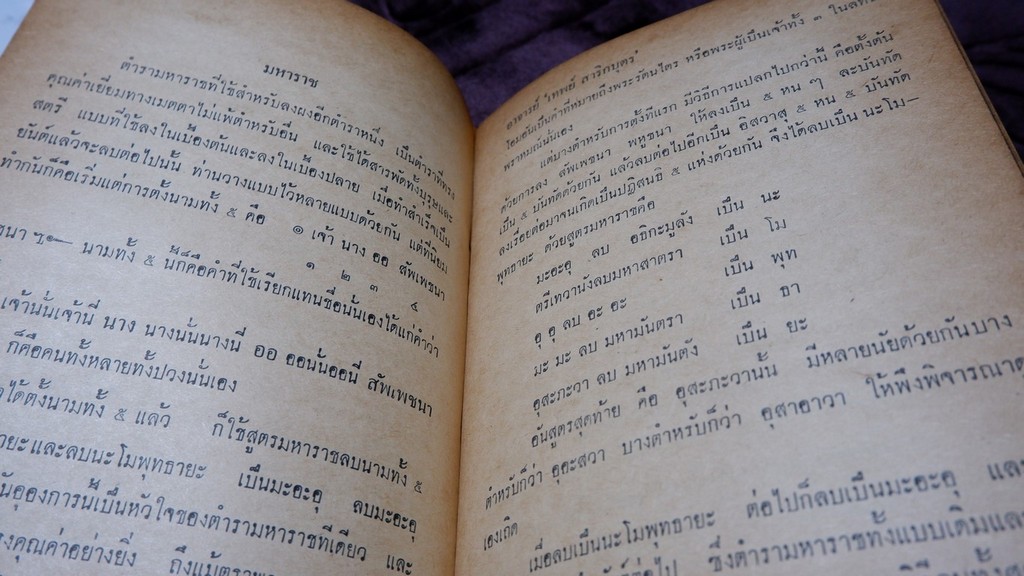 มหาราช
ตำรามหาราชที่ใช้สำหรับลงผงอีกตำราหนึ่ง เป็นตำราที่ทรง
คุณค่าเยี่ยมทางเมตตาไม่แพ้ตำหรับอื่น และใช้ได้สารพัดทั้งบุรุษและ
สตรี แบบที่ใช้ลงในเบื้องต้นและลงในเบื้องปลาย เมื่อทำสำเร็จเป็น
ยันต์แล้วจะลบต่อไปนั้น ท่านวางแบบไว้หลายแบบด้วยกัน แต่ที่นิยม
ทำกันก็คือเริ่มแต่การตั้งนามทั้ง ๕ คือ ๑ เจ้า นาง ออ สัพเพชนา
๑ ๒ ๓ ๔
นามทั้ง ๕ นี้ก็คือคำที่ใช้เรียกแทนชื่อนั้นเองได้แก่คำว่า
เจ้านั่นเจ้านี่ นาง นางนั่นนางนี่ ออ ออนั้นออนี่ สัพเพชนา
ก็คือคนทั้งหลายทั้งปวงนั่นเอง
ได้ตั้งนามทั้ง ๕ แล้ว ก็ใช้สูตรมหาราชลบนามทั้ง ๕
และลบนะโมพุทธายะ เป็นมะอะอุ ลบมะอะอุ
องการนี้เป็นหัวใจของตำรามหาราชทีเดียว และ
คุณค่าอย่างยิ่ง ถึงแม้ตรา
อาจารย์ เทพย์ สาริกบุตร
โอมอันเป็นคำที่หมายถึงพระรัตนไตร หรือพระผู้เป็นเจ้าทั้ง ๓ ในลัทธิ
พราหมณ์นั่นเอง
แต่บางตำหรับการตั้งที่แรก มีวิธีการแปลกไปกว่านี้ คือตั้งต้น
ด้วยการลง สัพเพชนา พหูชนา ให้ลงเป็น ๕ หน ๆ ละบันทัด
เป็น ๕ บันทัดด้วยกัน แล้วลบต่อไปอีกเป็น อิสวาสุ ๕ หน ๕ บันทัด
ลงเรื่อยต่อมาจนเกิดเป็นปฏิสนธิ ๕ แห่งด้วยกัน จึงได้ลบเป็น นะโม—
พุทธายะ ด้วยสูตรมหาราชคือ
มะอะอุ ลบ อธิกะมูลัง เป็น นะ
ตรีเทวานังลบมหาสาตรา เป็น โม
อุ อุ ลบ อะ อะ เป็น พุท
มะ มะ ลบ มหามันตรา เป็น ธา
อุสะภะวา ลบ มหามันตัง เป็น ยะ
อันสูตรสุดท้าย คือ อุสะภะวานั้น มีหลายนัยด้วยกันบาง
ตำหรับก็ว่า อุอะสวา บางตำหรับก็ว่า อุสาอาวา ให้พึงพิจารณา
เองเถิด
เมื่อลบเป็นนะโมพุทธายะ ต่อไปก็ลบเป็นมะอะอุ และ
ต่อไป ซึ่งตำรามหาราชทั้งแบบเดิมและ